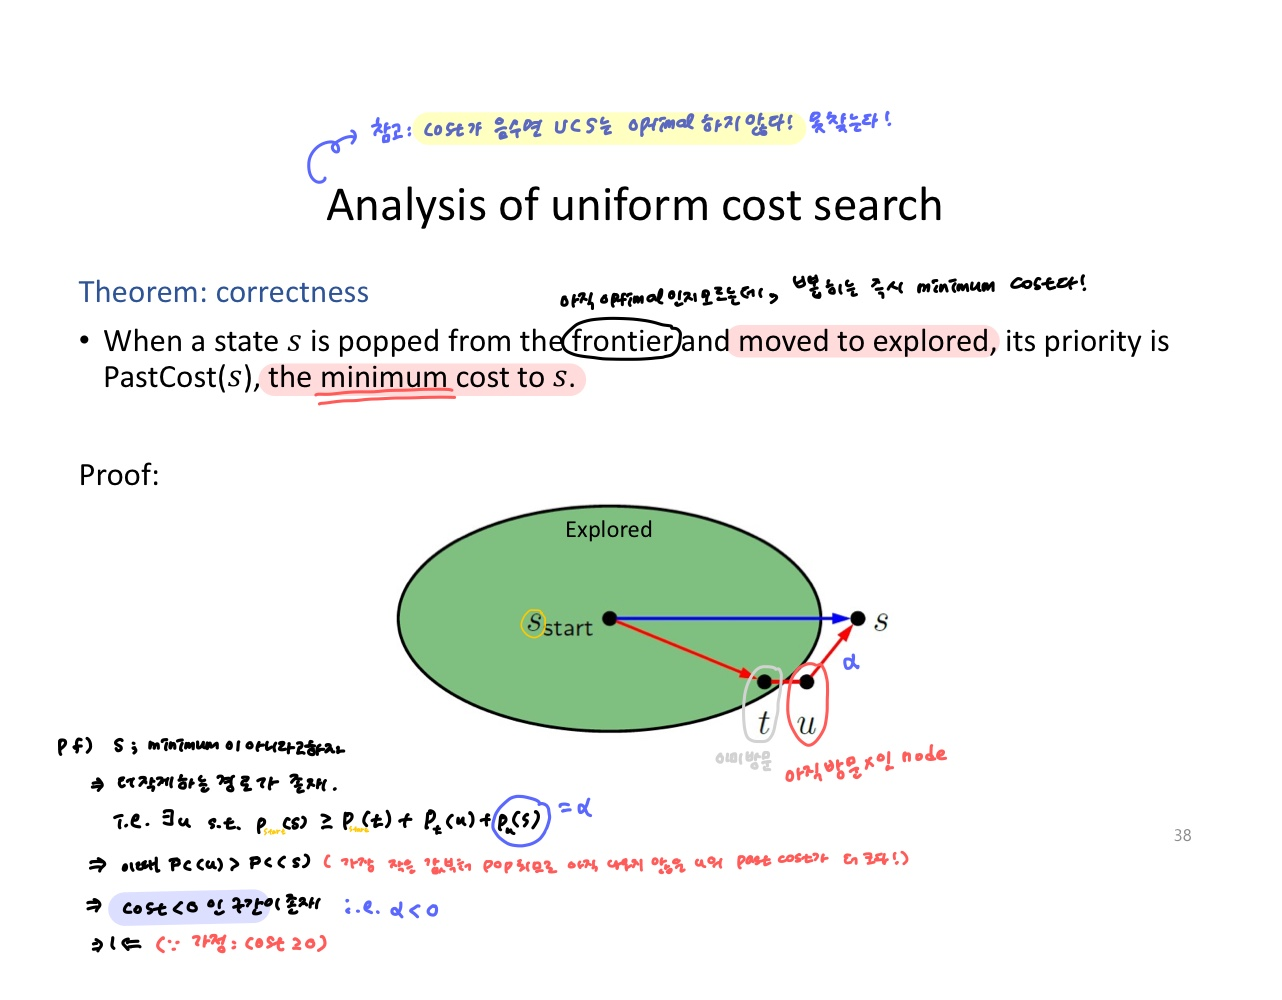 참고: cost가 음수면 UCS는 optimal 하지 않다! 못찾는다!
Analysis of uniform cost search
Theorem: correctness
아직 optimal인지모르는데, 뽑히는 즉시 minimum cost다!
• When a state s is popped from the frontier and moved to explored, its priority is
PastCost(s), the minimum cost to s.
Proof:
Explored
s start
s
α
t u
이미방문
아직방문x인 node
pf) s; minimum이아니라고하자
⇒ 더작게하는 경로가 존재.
i.e. ∃u s.t. P start (s) ≥ P start (t) + P t (u) + P u (s) = α
⇒ 이때 Pc(u) > Pc(s) ( 가장 작은 값부터 pop 하므로 아직 나오지 않은 u의 past cost가 더 크다!)
⇒ cost<0 인 구간이 존재 i.e. α<0
⇒|⇐ (∵ 가정: cost≥0)
38